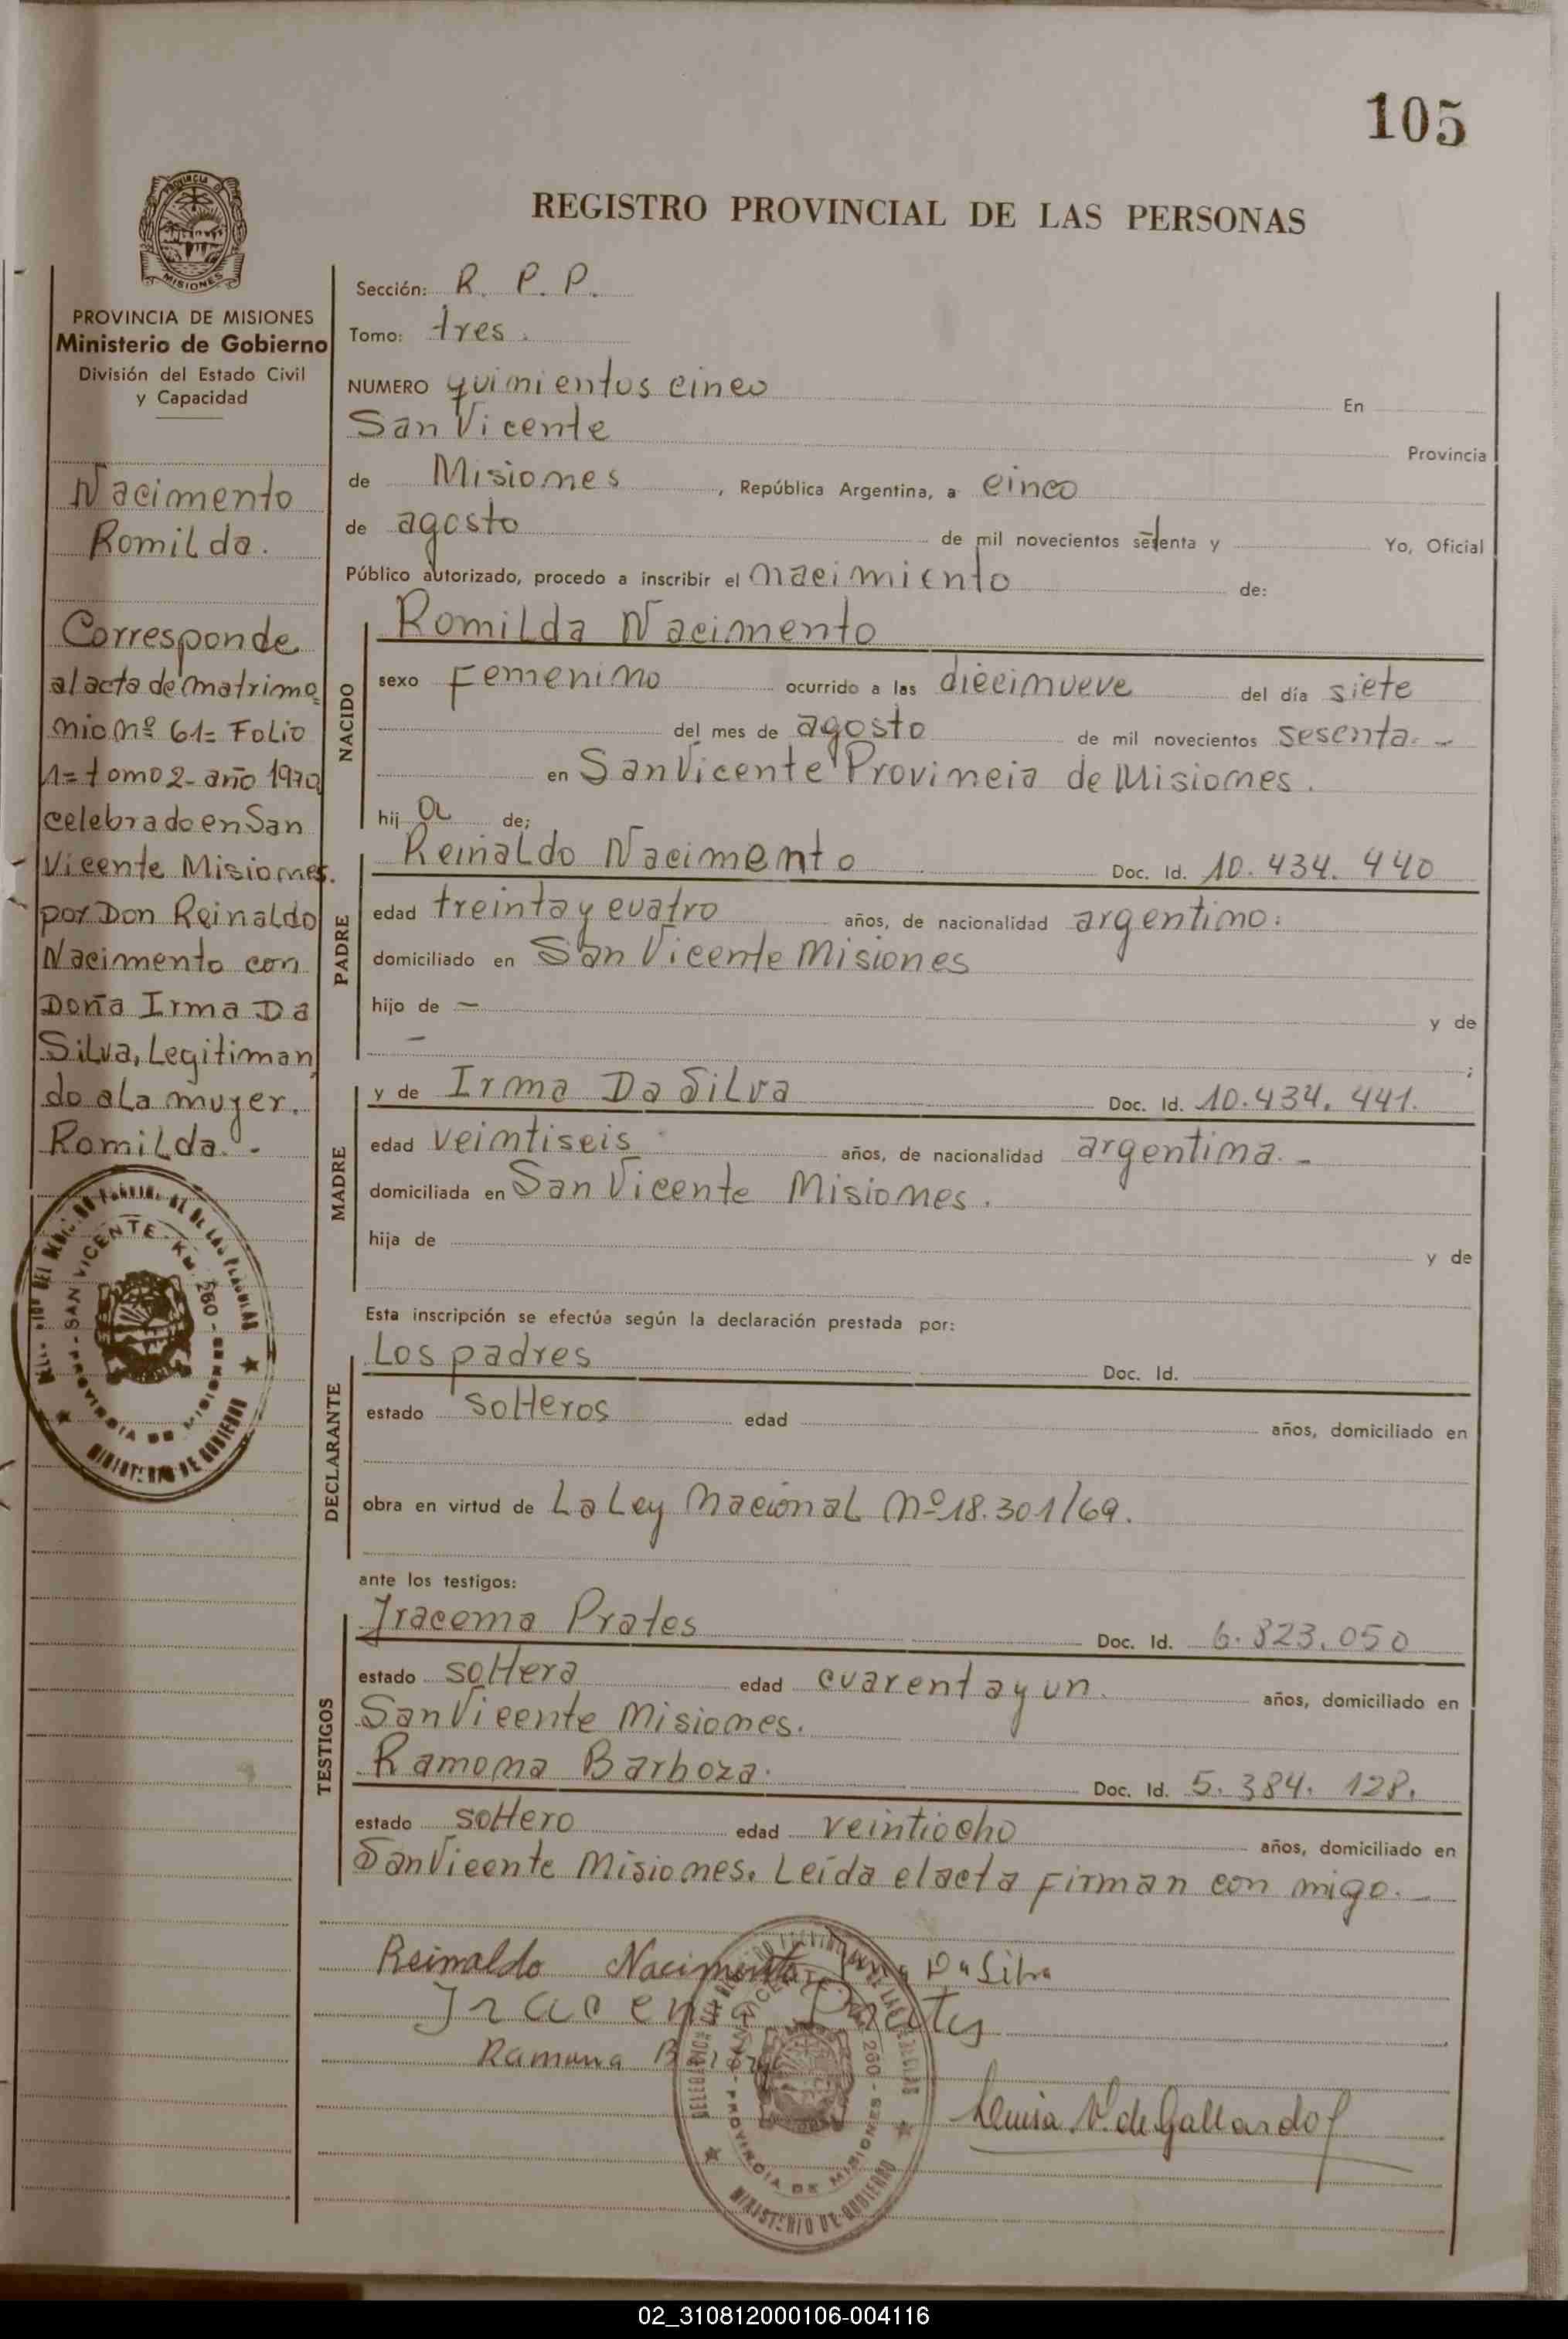 105
PROVINCIA DE
MISIONES
REGISTRO PROVINCIAL DE LAS PERSONAS
PROVINCIA DE MISIONES
Ministerio de Gobierno
División del Estado Civil
y Capacidad
Nacimento
Romilda.
Corresponde
al acta de matrimo
nio nº 61= Folio
1= tomo 2- año 1970
celebrado en San
Vicente Misiones.
por Don Reinaldo
Nacimento con
Doña Irma Da
Silva, Legitiman
do a La mujer.
Romilda. -
Sección: R. P. P.
Tomo: tres.
NUMERO quinientos cinco En
San Vicente Provincia
de Misiones, República Argentina, a cinco
de agosto de mil novecientos setenta y Yo, Oficial
Público autorizado, procedo a inscribir el nacimiento de:
NACIDO
Romilda Nacimento
sexo Femenino ocurrido a las diecinueve del día siete
del mes de agosto de mil novecientos sesenta. -
en San Vicente Provincia de Misiones.
hij a de;
PADRE
Reinaldo Nacimento Doc. Id. 10.434.440
edad treinta y cuatro años, de nacionalidad argentino.
domiciliado en San Vicente Misiones
hijo de - y de
- ;
MADRE
y de Irma Da Silva Doc. Id. 10.434.441.
edad veintiseis años, de nacionalidad argentina. -
domiciliada en San Vicente Misiones.
hija de y de
DECLARANTE
Esta inscripción se efectúa según la declaración prestada por:
Los padres Doc. Id.
estado solteros edad años, domiciliado en
obra en virtud de La Ley Nacional Nº 18.301/69.
ante los testigos:
TESTIGOS
Iracema Prates Doc. Id. 6.823.050
estado soltera edad cuarent a y un. años, domiciliado en
San Vicente Misiones.
Ramona Barboza. Doc. Id. 5.384.128.
estado soltero edad veintiocho años, domiciliado en
San Vicente Misiones. Leída el acta Firman con migo. -
SAN VICENTE - KM. 260 -
PROVINCIA DE MISIONES
MINISTERIO DE GOBIERNO
Reinaldo Nacimento Da Silva
Iracema Prates
Ramona
SAN VICENTE 260 -
PROVINCIA DE MISIONES
MINISTERIO DE GOBIERNO
Luisa V. de Gallardo
02_310812000106-004116